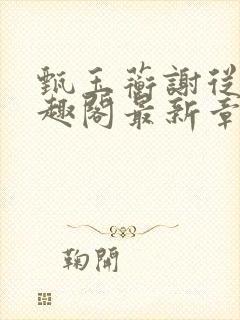 甄玉蘅謝從
趣閣最新章
鞠開